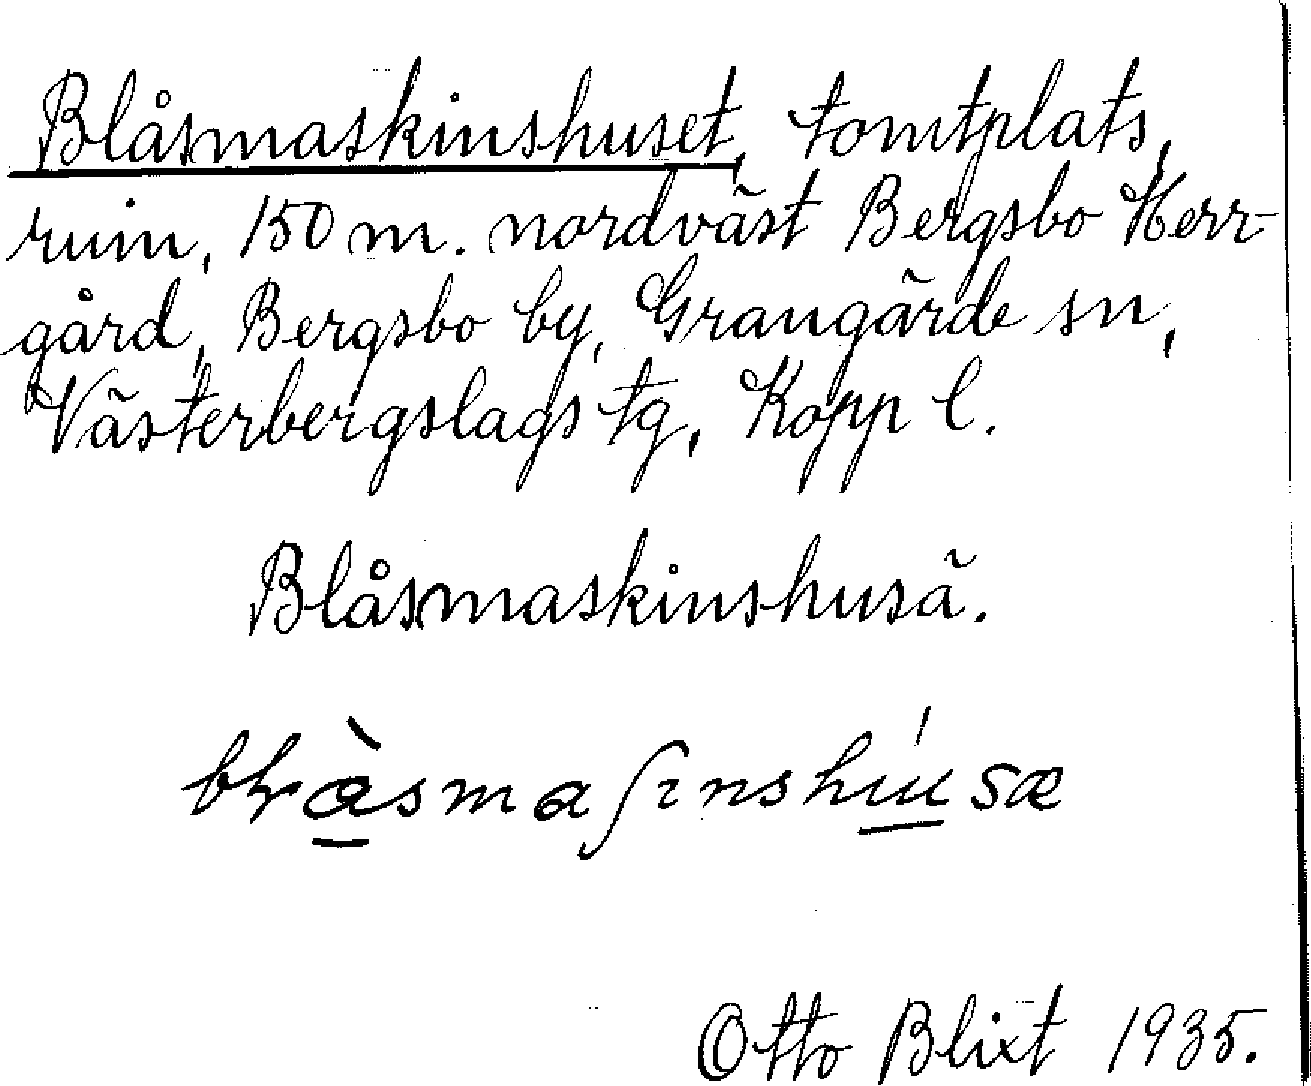 Blåsmaskinshuset, tomtplats,
ruin, 150 m. nordväst Bergsbo Herr-
gård, Bergsbo by, Grangärde sn,
Västerbergslags tg, Kopp l.
Blåsmaskinshusä.
Otto Blixt 1935.